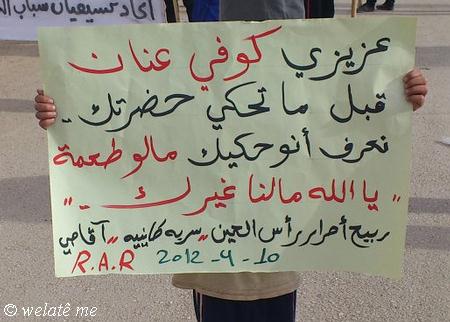 اتحاد تنسيقيات شباب ال
عزيزي كوفي عنان
قبل ما تحكي حضرتك ..
نعرف أنو حكيك مالو طعمة
" يا الله مالنا غيرك .. "
ربيع أحرار رأس العين ,, سريه كانييه ,, آقاجي
R.A.R 2012-4-10
© welatê me